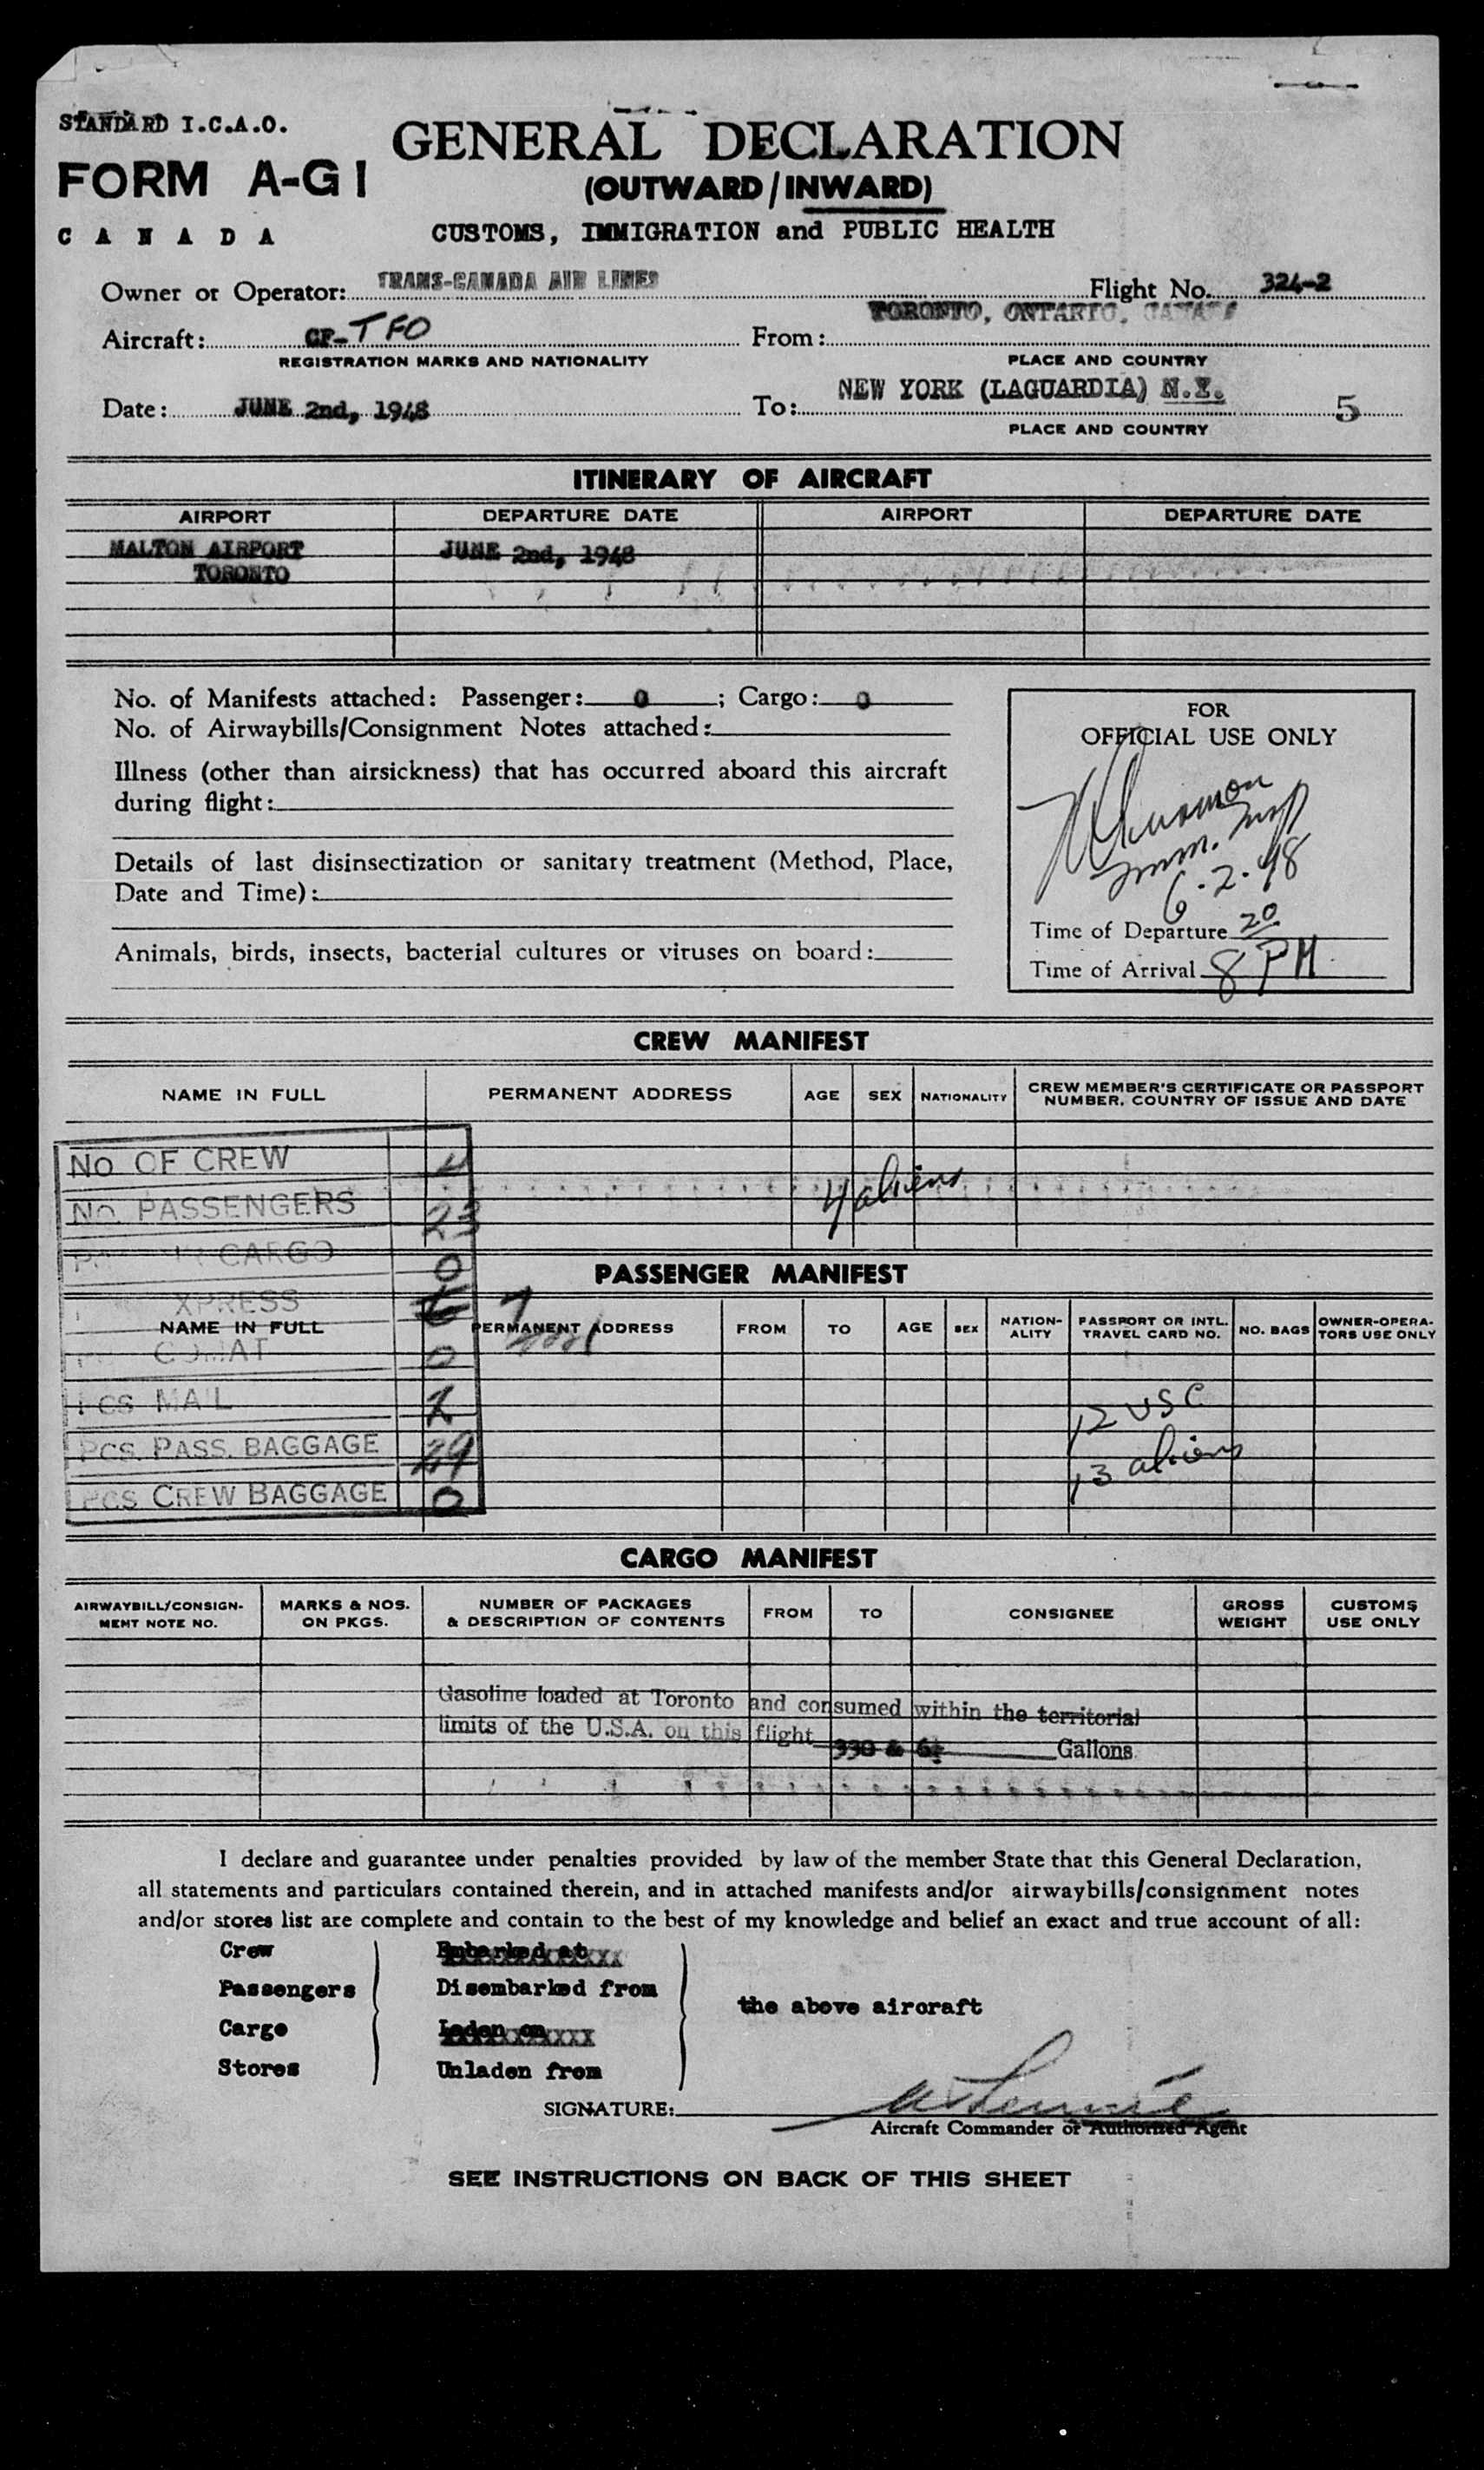 STANDARD I.C.A.O.
FORM A-G1
CANADA
GENERAL DECLARATION
(OUTWARD/INWARD)
CUSTOMS, IMMIGRATION and PUBLIC HEALTH
Owner or Operator: TRANS-CANADA AIR LINES Flight No. 324-2
Aircraft: CF-TFO From: TORONTO, ONTARIO, CANADA
REGISTRATION MARKS AND NATIONALITY PLACE AND COUNTRY
Date: JUNE 2nd, 1948 To: NEW YORK (LAGUARDIA) N.Y. 5
PLACE AND COUNTRY
ITINERARY OF AIRCRAFT
AIRPORT DEPARTURE DATE AIRPORT DEPARTURE DATE
MALTON AIRPORT JUNE 2nd, 1948
TORONTO
No. of Manifests attached: Passenger: 0 ; Cargo: 0
No. of Airwaybills/Consignment Notes attached:
Illness (other than airsickness) that has occurred aboard this aircraft
during flight:
Details of last disinsectization or sanitary treatment (Method, Place,
Date and Time):
Animals, birds, insects, bacterial cultures or viruses on board:
FOR
OFFICIAL USE ONLY
Imm. Insp
6-2-48
Time of Departure 20
Time of Arrival 8 PM
CREW MANIFEST
NAME IN FULL PERMANENT ADDRESS AGE SEX NATIONALITY CREW MEMBER'S CERTIFICATE OR PASSPORT
NUMBER, COUNTRY OF ISSUE AND DATE
NO OF CREW 4
4 aliens
NO. PASSENGERS 23
CARGO 0
PASSENGER MANIFEST
XPRESS
NAME IN FULL PERMANENT ADDRESS FROM TO AGE SEX NATION-
ALITY PASSPORT OR INTL.
TRAVEL CARD NO. NO. BAGS OWNER-OPERA-
TORS USE ONLY
COMAT 0
PCS MAIL
12 USC
PCS. PASS. BAGGAGE 29
13 aliens
PCS CREW BAGGAGE 0
CARGO MANIFEST
AIRWAYBILL/CONSIGN-
MENT NOTE NO. MARKS & NOS.
ON PKGS. NUMBER OF PACKAGES
& DESCRIPTION OF CONTENTS FROM TO CONSIGNEE GROSS
WEIGHT CUSTOMS
USE ONLY
Gasoline loaded at Toronto and consumed within the territorial
limits of the U.S.A. on this flight 330 & Gallons
I declare and guarantee under penalties provided by law of the member State that this General Declaration,
all statements and particulars contained therein, and in attached manifests and/or airwaybills/consignment notes
and/or stores list are complete and contain to the best of my knowledge and belief an exact and true account of all:
Crew Embarked at
Passengers Disembarked from
the above aircraft
Cargo Laden on
Stores Unladen from
SIGNATURE:
Aircraft Commander or Authorized Agent
SEE INSTRUCTIONS ON BACK OF THIS SHEET